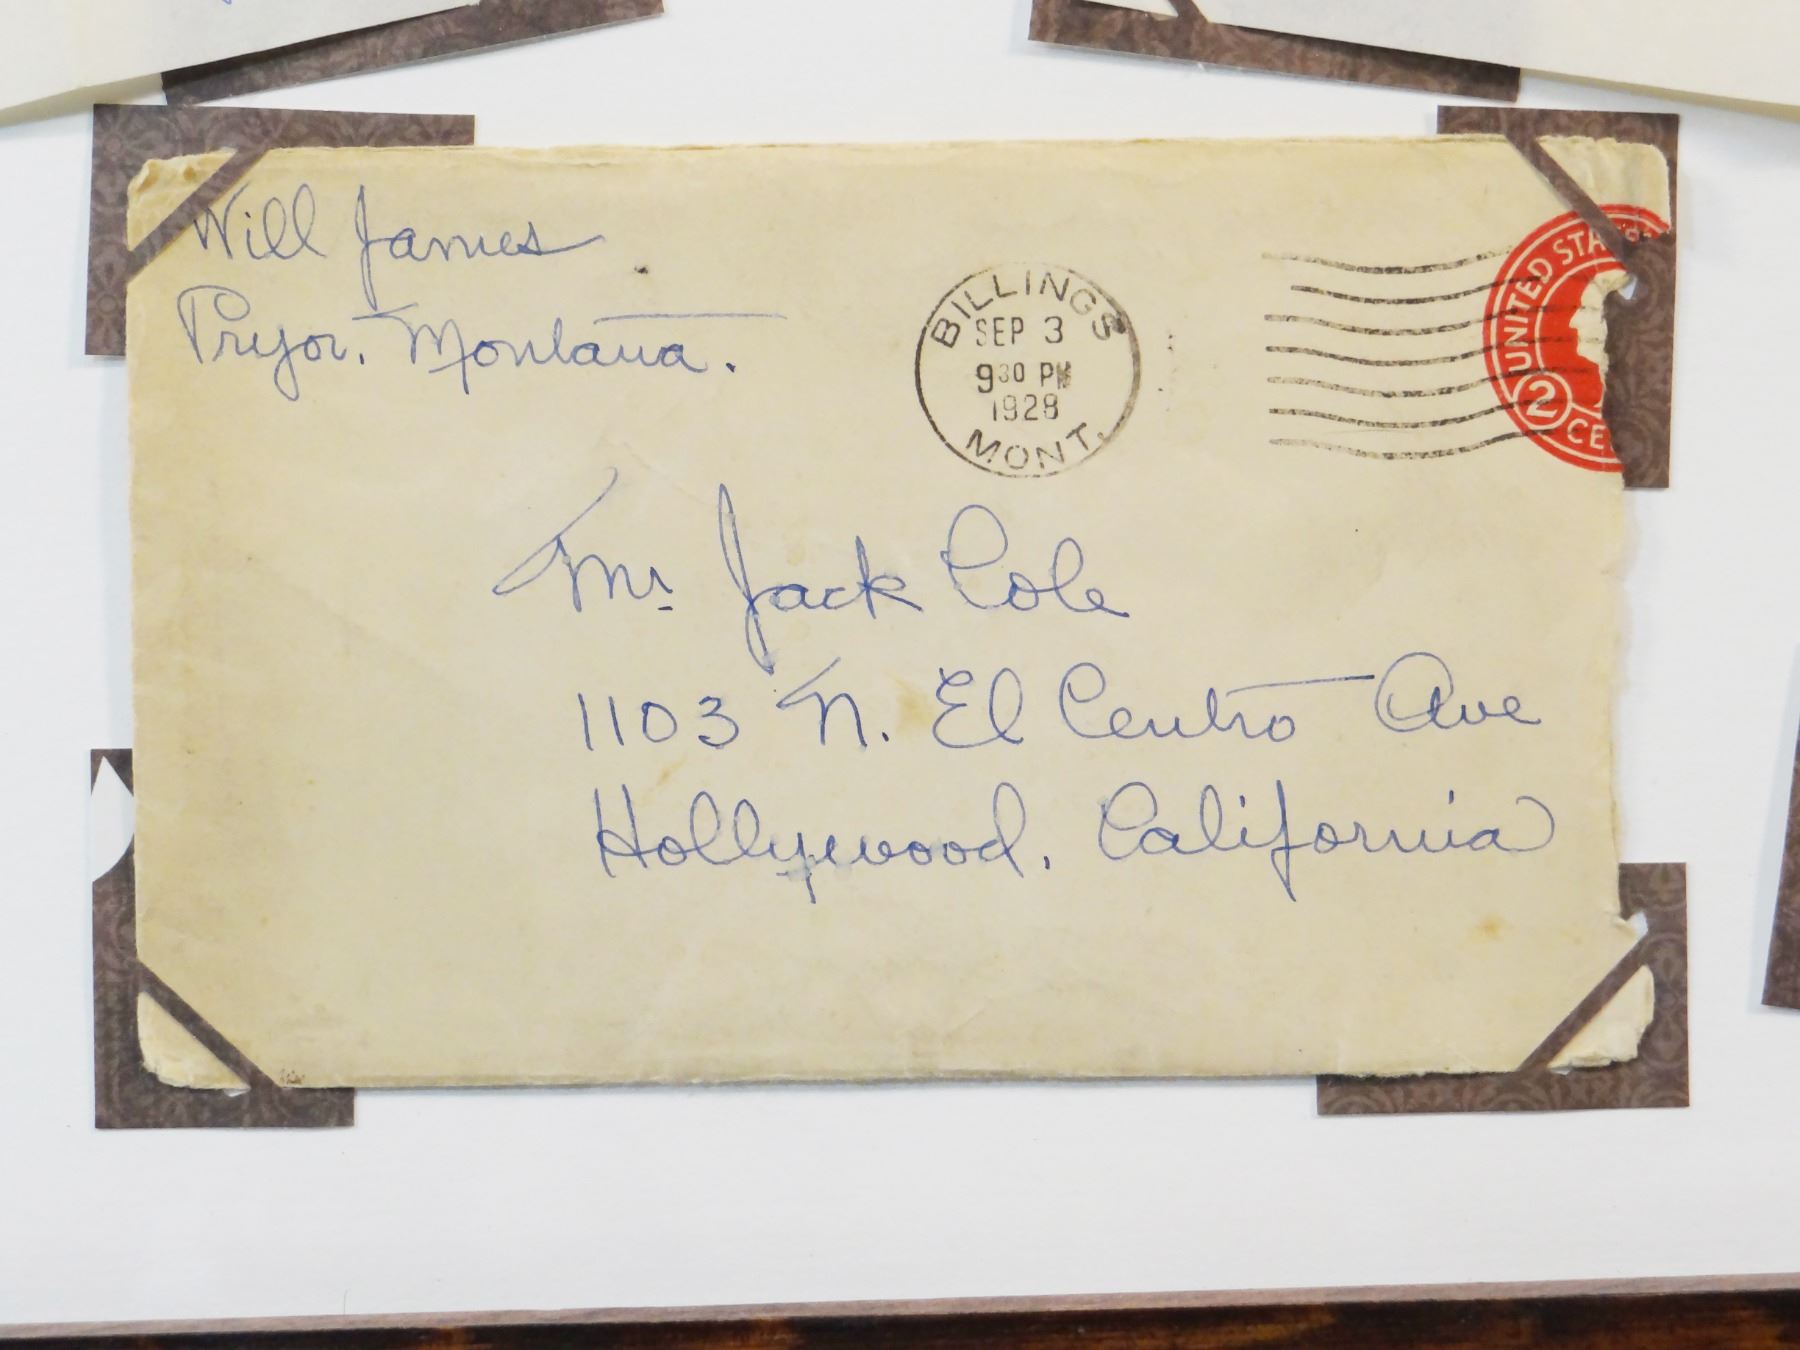 Will James
Pryor. Montana.
BILLINGS
SEP 3
9 30 PM
1928
MONT.
UNITED STATES
2
CE
Mr Jack Cole
1103 N. El Centro Ave
Hollywood. California